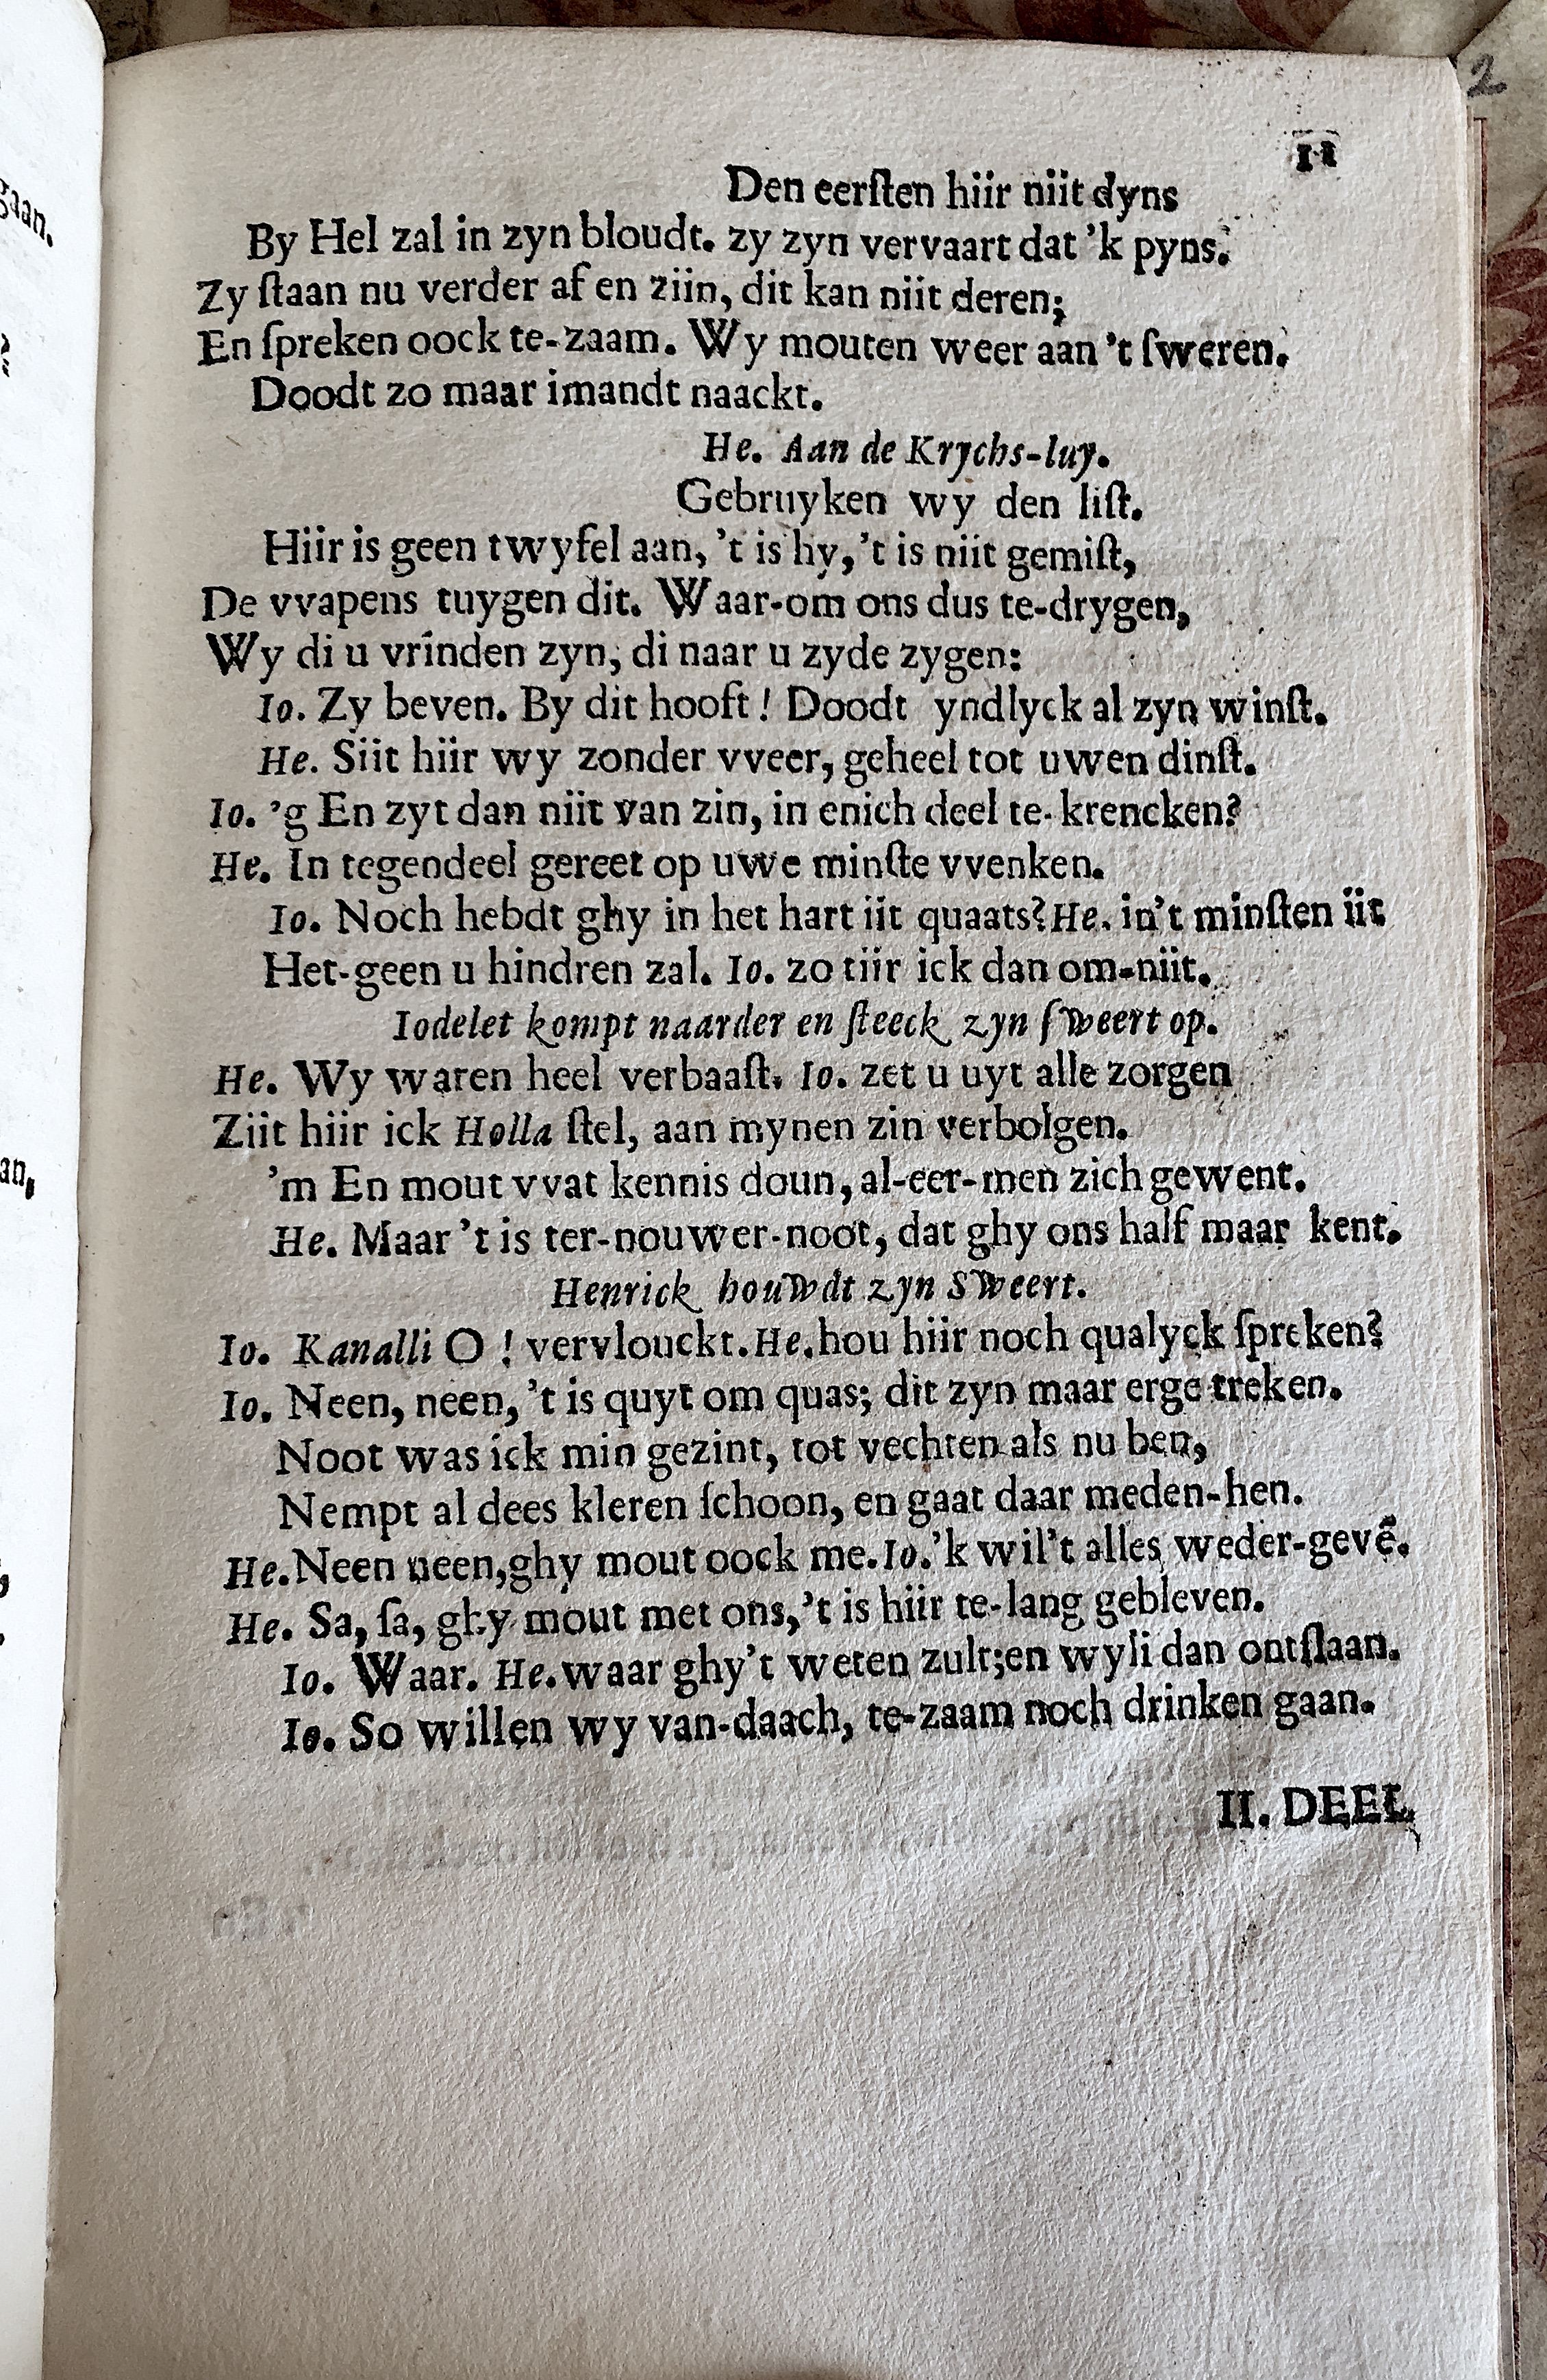 gaan.
2
11
Den eerſten hiir niit dyns
By Hel zal in zyn bloudt. zy zyn vervaart dat 'k pyns.
Zy ſtaan nu verder af en ziin, dit kan niit deren;
En ſpreken oock te-zaam. Wy mouten weer aan 't ſweren.
Doodt zo maar imandt naackt.
He. Aan de Krychs-luy.
Gebruyken wy den liſt.
Hiir is geen twyfel aan, 't is hy, 't is niit gemiſt,
De vvapens tuygen dit. Waar-om ons dus te-drygen,
Wy di u vrinden zyn, di naar u zyde zygen:
Io. Zy beven. By dit hooft! Doodt yndlyck al zyn winſt.
He. Siit hiir wy zonder vveer, geheel tot uwen dinſt.
Io. 'g En zyt dan niit van zin, in enich deel te-krencken?
He. In tegendeel gereet op uwe minſte vvenken.
Io. Noch hebdt ghy in het hart iit quaats? He. in't minſten iit
Het-geen u hindren zal. Io. zo tiir ick dan om-niit.
Iodelet kompt naarder en ſteeck zyn ſweert op.
He. Wy waren heel verbaaſt. Io. zet u uyt alle zorgen
Ziit hiir ick Holla ſtel, aan mynen zin verbolgen.
'm En mout vvat kennis doun, al-eer-men zich gewent.
He. Maar 't is ter-nouwer-noot, dat ghy ons half maar kent.
Henrick houwdt zyn Sweert.
Io. Kanalli O! vervlouckt. He. hou hiir noch qualyck ſpreken?
Io. Neen, neen, 't is quyt om quas; dit zyn maar erge treken.
Noot was ick min gezint, tot vechten als nu ben,
Nempt al dees kleren ſchoon, en gaat daar meden-hen.
He. Neen neen, ghy mout oock me. Io. 'k wil't alles weder-gevē.
He. Sa, ſa, ghy mout met ons, 't is hiir te-lang gebleven.
Io. Waar. He. waar ghy't weten zult; en wyli dan ontſlaan.
Io. So willen wy van-daach, te-zaam noch drinken gaan.
II. DEEL